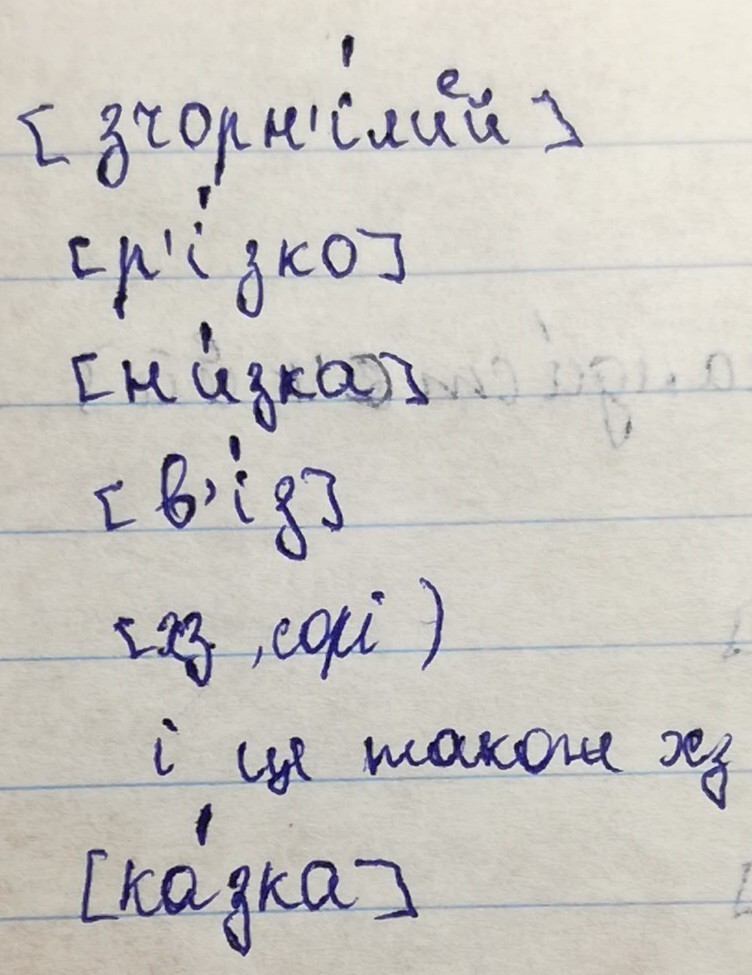 [зчорн'і́лиᵉй]
[р'і́зко]
[ни́зка]
[в'і́з]
[хз, сорі)
і це також хз
[ка́зка]